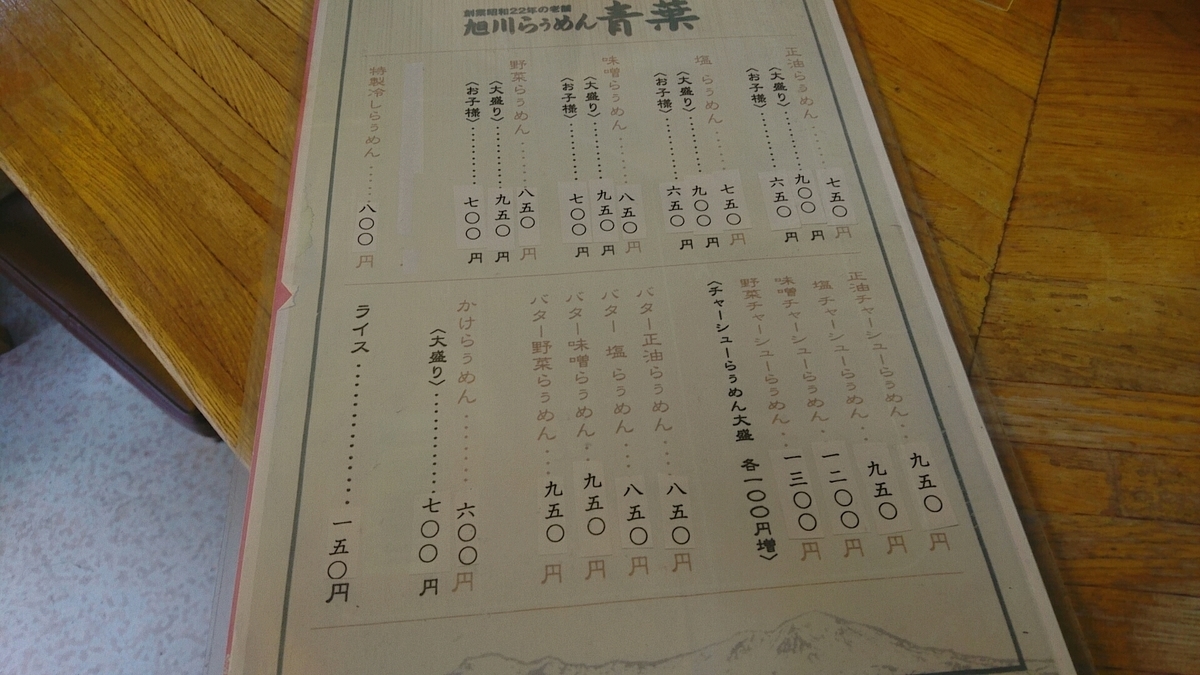 創業昭和22年の老舗
旭川らぅめん青葉
正油らぅめん……七五〇円
〈大盛り〉………九〇〇円
〈お子様〉………六五〇円
塩らぅめん……七五〇円
〈大盛り〉………九〇〇円
〈お子様〉………六五〇円
味噌らぅめん……八五〇円
〈大盛り〉………九五〇円
〈お子様〉………七〇〇円
野菜らぅめん……八五〇円
〈大盛り〉………九五〇円
〈お子様〉………七〇〇円
特製冷しらぅめん……八〇〇円
正油チャーシューらぅめん…九五〇円
塩チャーシューらぅめん…九五〇円
味噌チャーシューらぅめん…一二〇〇円
野菜チャーシューらぅめん…一三〇〇円
〈チャーシューらぅめん大盛 各一〇〇円増〉
バター正油らぅめん…八五〇円
バター塩らぅめん…八五〇円
バター味噌らぅめん…九五〇円
バター野菜らぅめん…九五〇円
かけらぅめん………六〇〇円
〈大盛り〉…………七〇〇円
ライス……………一五〇円